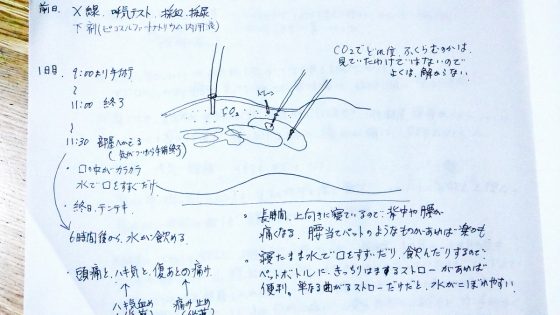 前日. X線. 呼気テスト. 採血. 採尿
下剤(ピコスルファートナトリウム内用液)
CO2でどれ位、ふくらむのかは、
見ていたわけではないので
よくは、解からない。
1日目. 9:00より手術
〜
11:00 終了
〜
11:30 部屋へかえる
(気がついたら手術終了)
CO2
・口の中がカラカラ
水で口をすすぐだけ
・終日、テンテキ
6時間後から、水が飲める
・頭痛と、ハキ気と、傷あとの痛み
ハキ気止め
痛み止め
。長時間、上向きに寝ているので、背中や腰が
痛くなる。腰当てペットのようなものがあれば楽かも
。寝たまま水で口をすすいだり、飲んだりするので、
ペットボトルに、きっちりはまるストローがあれば
便利。単なる曲がるストローだけだと、水がこぼれやすい。